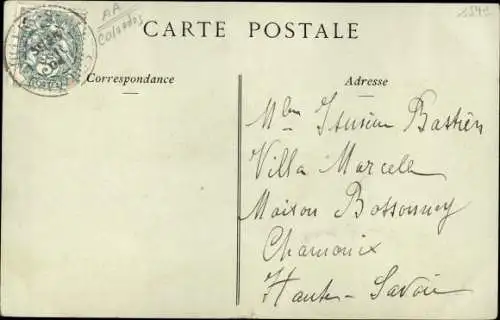 AA
Calvados
CARTE POSTALE
Correspondance
Adresse
Bastien
Villa Marcelle
Maison Bossonney
Chamonix
Haute-Savoie